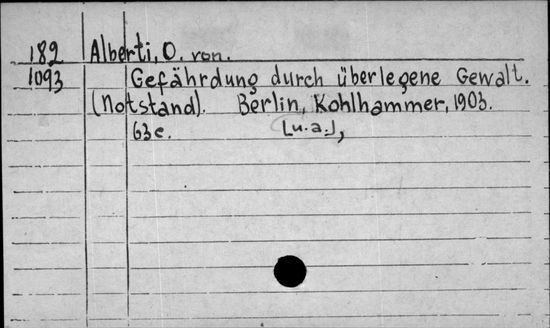 182 Alberti, O. von.
1093 Gefährdung durch überlegene Gewalt.
(Notstand). Berlin, Kohlhammer, 1903.
63 e. [u.a.],